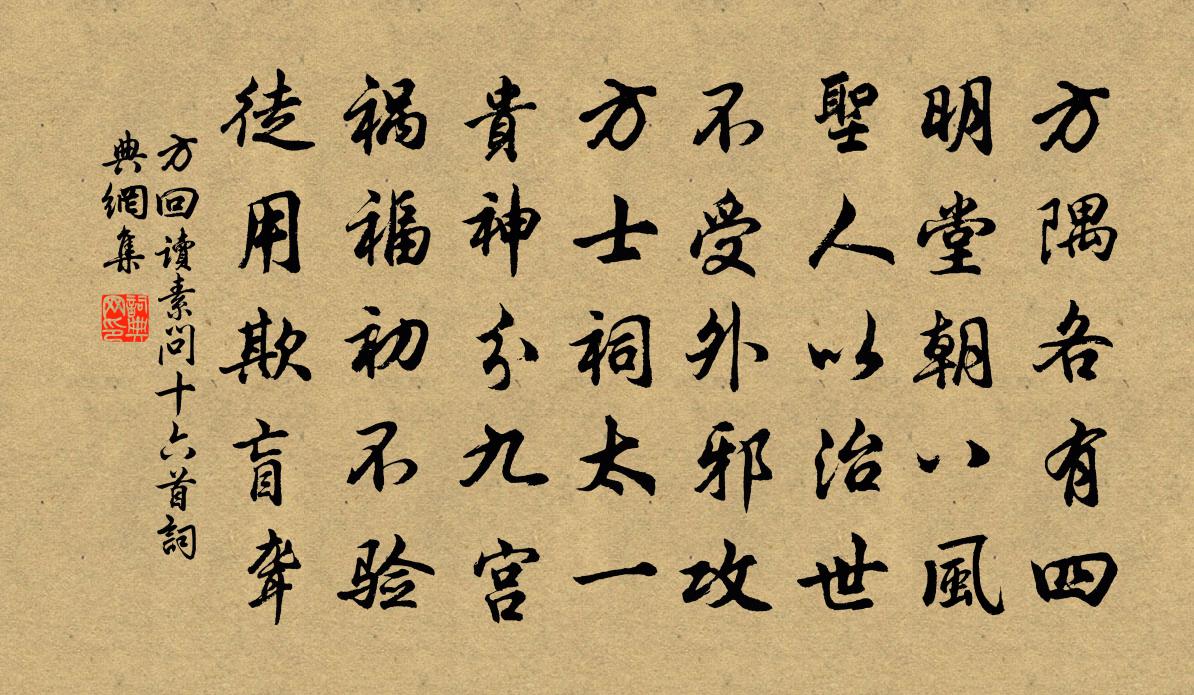 方隅各有四
明堂朝八風
聖人以治世
不受外邪攻
方士祠太一
貴神分九宮
祸福初不验
徒用欺盲聋
方回讀素問十六首詞
典網集
詞典
网印